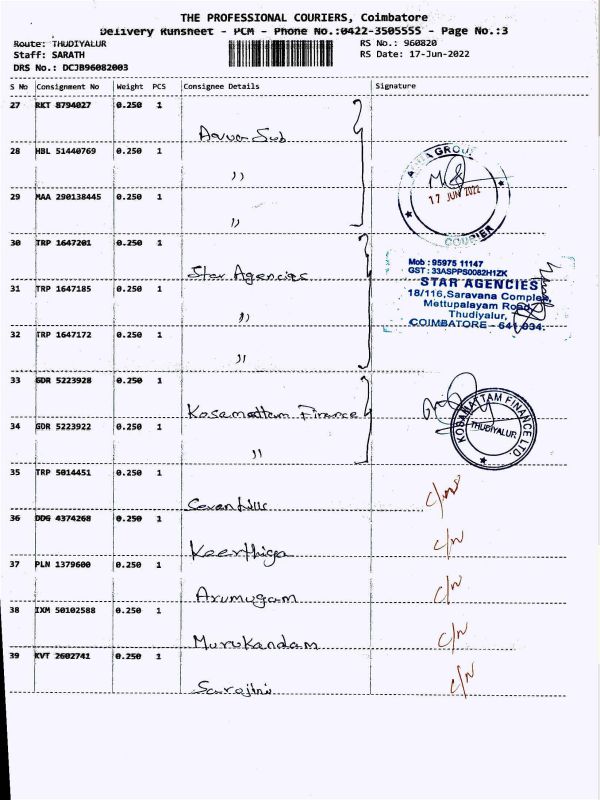 THE PROFESSIONAL COURIERS, Coimbatore
Delivery Runsheet - PCM - Phone No.:0422-3505555 - Page No.:3
Route: THUDIYALUR
Staff: SARATH
DRS No.: DCJB96082003
RS No.: 960820
RS Date: 17-Jun-2022
S No Consignment No Weight PCS Consignee Details Signature
27 RKT 8794027 0.250 1
Sub
28 HBL 51440769 0.250 1
"
29 MAA 290138445 0.250 1
"
GROUP
17 JUN 2022
COURIER
30 TRP 1647201 0.250 1
Star Agencies
31 TRP 1647185 0.250 1
"
32 TRP 1647172 0.250 1
"
Mob : 95975 11147
GST : 33ASPPS0082H1ZK
STAR AGENCIES
18/116,Saravana Complex,
Mettupalayam Road,
Thudiyalur,
COIMBATORE - 641 034.
33 GDR 5223928 0.250 1
Kosamattam Finance
34 GDR 5223922 0.250 1
"
KOSAMATTAM FINANCE LTD.
THUDIYALUR
35 TRP 5014451 0.250 1
Seven hills
36 DDG 4374268 0.250 1
Keerthiga C/N
37 PLN 1379600 0.250 1
Arumugam C/N
38 IXM 50102588 0.250 1
Murukandam C/N
39 KVT 2602741 0.250 1
Sarojini C/N